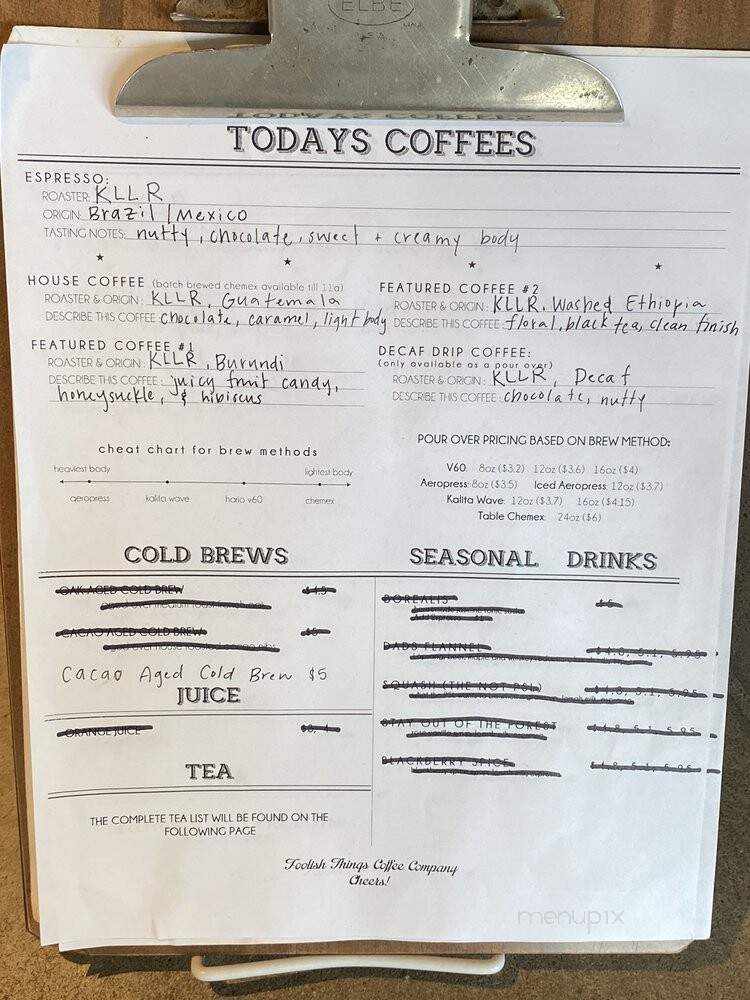 ELBE
U.S.A.
TODAYS COFFEES
ESPRESSO:
ROASTER: KLLR
ORIGIN: Brazil | Mexico
TASTING NOTES: nutty, chocolate, sweet + creamy body
HOUSE COFFEE (batch brewed chemex available till 11a)
ROASTER & ORIGIN: KLLR, Guatemala
DESCRIBE THIS COFFEE: chocolate, caramel, light body
FEATURED COFFEE #1
ROASTER & ORIGIN: KLLR, Burundi
DESCRIBE THIS COFFEE: juicy fruit candy,
honeysuckle, & hibiscus
FEATURED COFFEE #2
ROASTER & ORIGIN: KLLR, Washed Ethiopia
DESCRIBE THIS COFFEE: floral, black tea, clean finish
DECAF DRIP COFFEE:
(only available as a pour over)
ROASTER & ORIGIN: KLLR, Decaf
DESCRIBE THIS COFFEE: chocolate, nutty
cheat chart for brew methods
heaviest body lightest body
aeropress kalita wave hario v60 chemex
POUR OVER PRICING BASED ON BREW METHOD:
V60: 8oz ($3.2) 12oz ($3.6) 16oz ($4)
Aeropress: 8oz ($3.5) Iced Aeropress: 12oz ($3.7)
Kalita Wave: 12oz ($3.7) 16oz ($4.15)
Table Chemex: 24oz ($6)
COLD BREWS
OAK AGED COLD BREW $4.5
CACAO AGED COLD BREW $5
Cacao Aged Cold Brew $5
JUICE
ORANGE JUICE
TEA
THE COMPLETE TEA LIST WILL BE FOUND ON THE
FOLLOWING PAGE
SEASONAL DRINKS
BOREALIS $5
DADS FLANNEL $4.8, 5.1, 5.95
SQUASH (THE NOT PSL) $4.8, 5.1, 5.95
STAY OUT OF THE FOREST $4.8, 5.1, 5.95
BLACKBERRY SPICE $4.8, 5.1, 5.95
Foolish Things Coffee Company
Cheers!
menupix